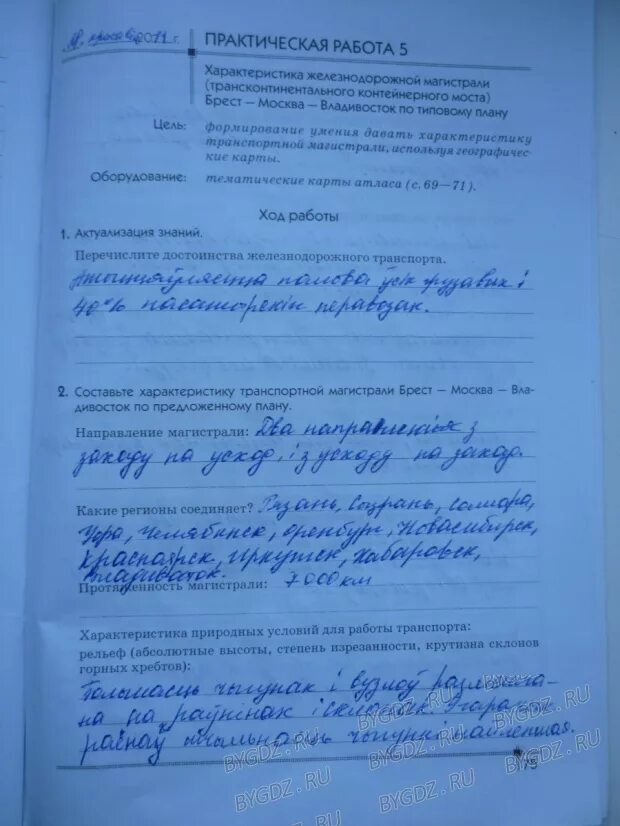 2011 г.
ПРАКТИЧЕСКАЯ РАБОТА 5
Характеристика железнодорожной магистрали
(трансконтинентального контейнерного моста)
Брест — Москва — Владивосток по типовому плану
Цель: формирование умения давать характеристику
транспортной магистрали, используя географичес-
кие карты.
Оборудование: тематические карты атласа (с. 69—71).
Ход работы
1. Актуализация знаний.
Перечислите достоинства железнодорожного транспорта.
палова ўсіх грузавых і
40% пасажирскіх перавозак.
2. Составьте характеристику транспортной магистрали Брест — Москва — Вла-
дивосток по предложенному плану.
Направление магистрали: Два направленія з
заходу на усход, і з усходу на заход.
Какие регионы соединяет? Рязань, Сызрань, Самара,
Уфа, Челябинск, Оренбург, Новосибирск,
Красноярск, Иркутск, Хабаровск,
Владивосток.
Протяженность магистрали: 7000 км
Характеристика природных условий для работы транспорта:
рельеф (абсолютные высоты, степень изрезанности, крутизна склонов
горных хребтов):
Большасць чыгунак і вузлоў размешча-
на на раўнінах і
чыгункі найлепшая.
75
BYGDZ.RU
BYGDZ.RU
BYGDZ.RU
BYGDZ.RU